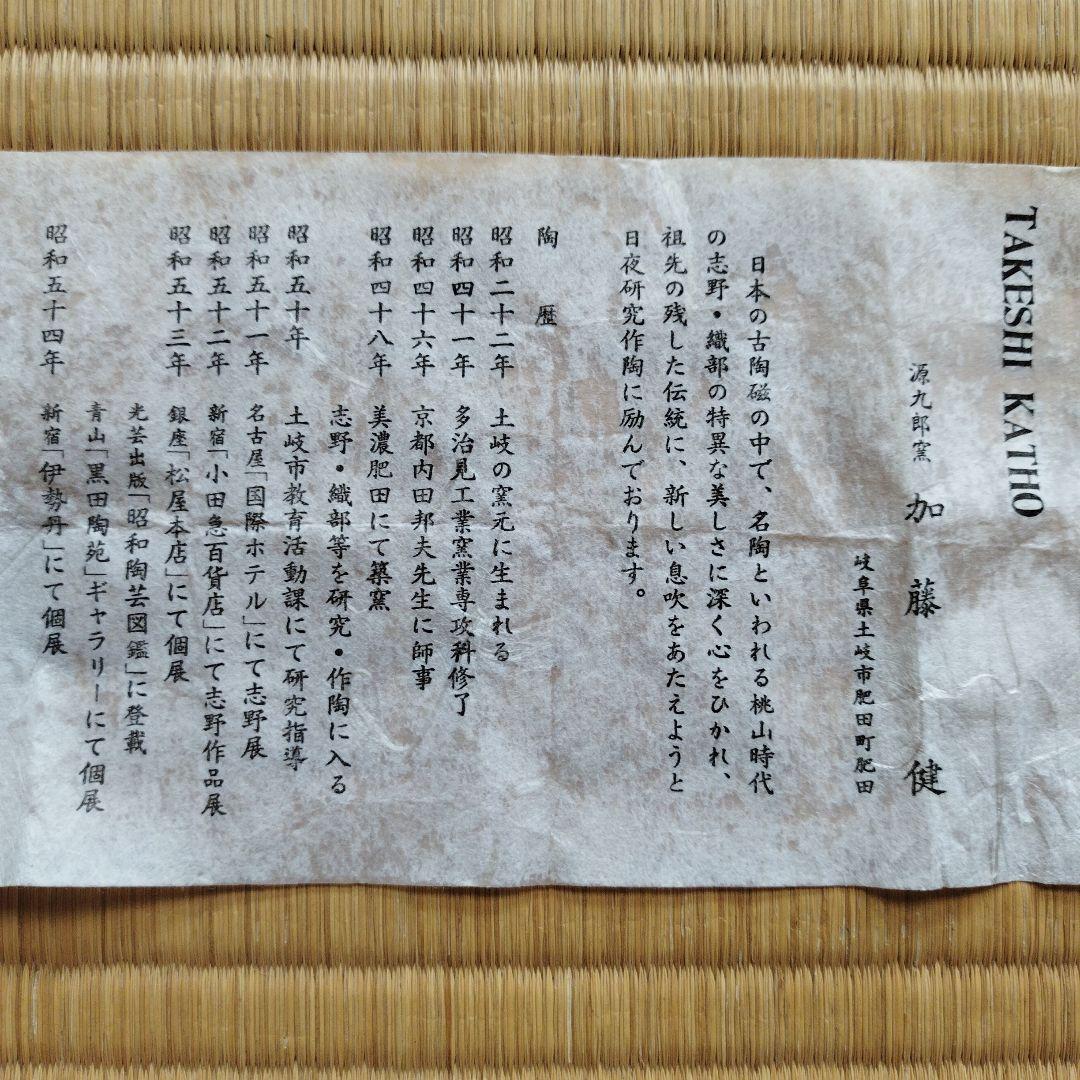 TAKESHI KATHO
源九郎窯 加藤 健
岐阜県土岐市肥田町肥田
日本の古陶磁の中で、名陶といわれる桃山時代
の志野・織部の特異な美しさに深く心をひかれ、
祖先の残した伝統に、新しい息吹をあたえようと
日夜研究作陶に励んでおります。
陶 歴
昭和二十二年 土岐の窯元に生まれる
昭和四十一年 多治見工業窯業専攻科修了
昭和四十六年 京都内田邦夫先生に師事
昭和四十八年 美濃肥田にて築窯
志野・織部等を研究・作陶に入る
昭和五十年 土岐市教育活動課にて研究指導
昭和五十一年 名古屋「国際ホテル」にて志野展
昭和五十二年 新宿「小田急百貨店」にて志野作品展
昭和五十三年 銀座「松屋本店」にて個展
光芸出版「昭和陶芸図鑑」に登載
青山「黒田陶苑」ギャラリーにて個展
昭和五十四年 新宿「伊勢丹」にて個展